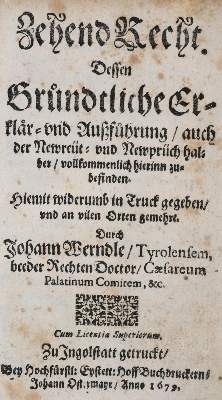 Zehend Recht.
Dessen
Gründtliche Er-
klär- vnd Außführung / auch
der Newreüt- vnd Newprüch hal-
ber / vollkommenlich hierinn zu-
befinden.
Hiemit widerumb in Truck gegeben /
vnd an vilen Orten gemehrt.
Durch
Johann Werndle / Tyrolensem,
beeder Rechten Doctor / Cæsareum
Palatinum Comitem, &c.
Cum Licentia Superiorum.
Zu Ingolstatt getruckt /
Bey Hochfürstl: Eystett: Hoff Buchdruckern /
Johann Ostermayr / Anno 1679.